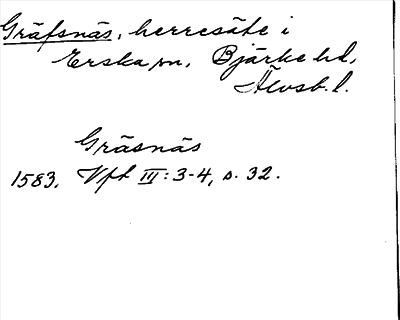 Gräfsnäs, herresäte i
Erska sn, Bjärke hd,
Älvsb. l.
Gräsnäs
1583. Vft III: 3-4, s. 32.